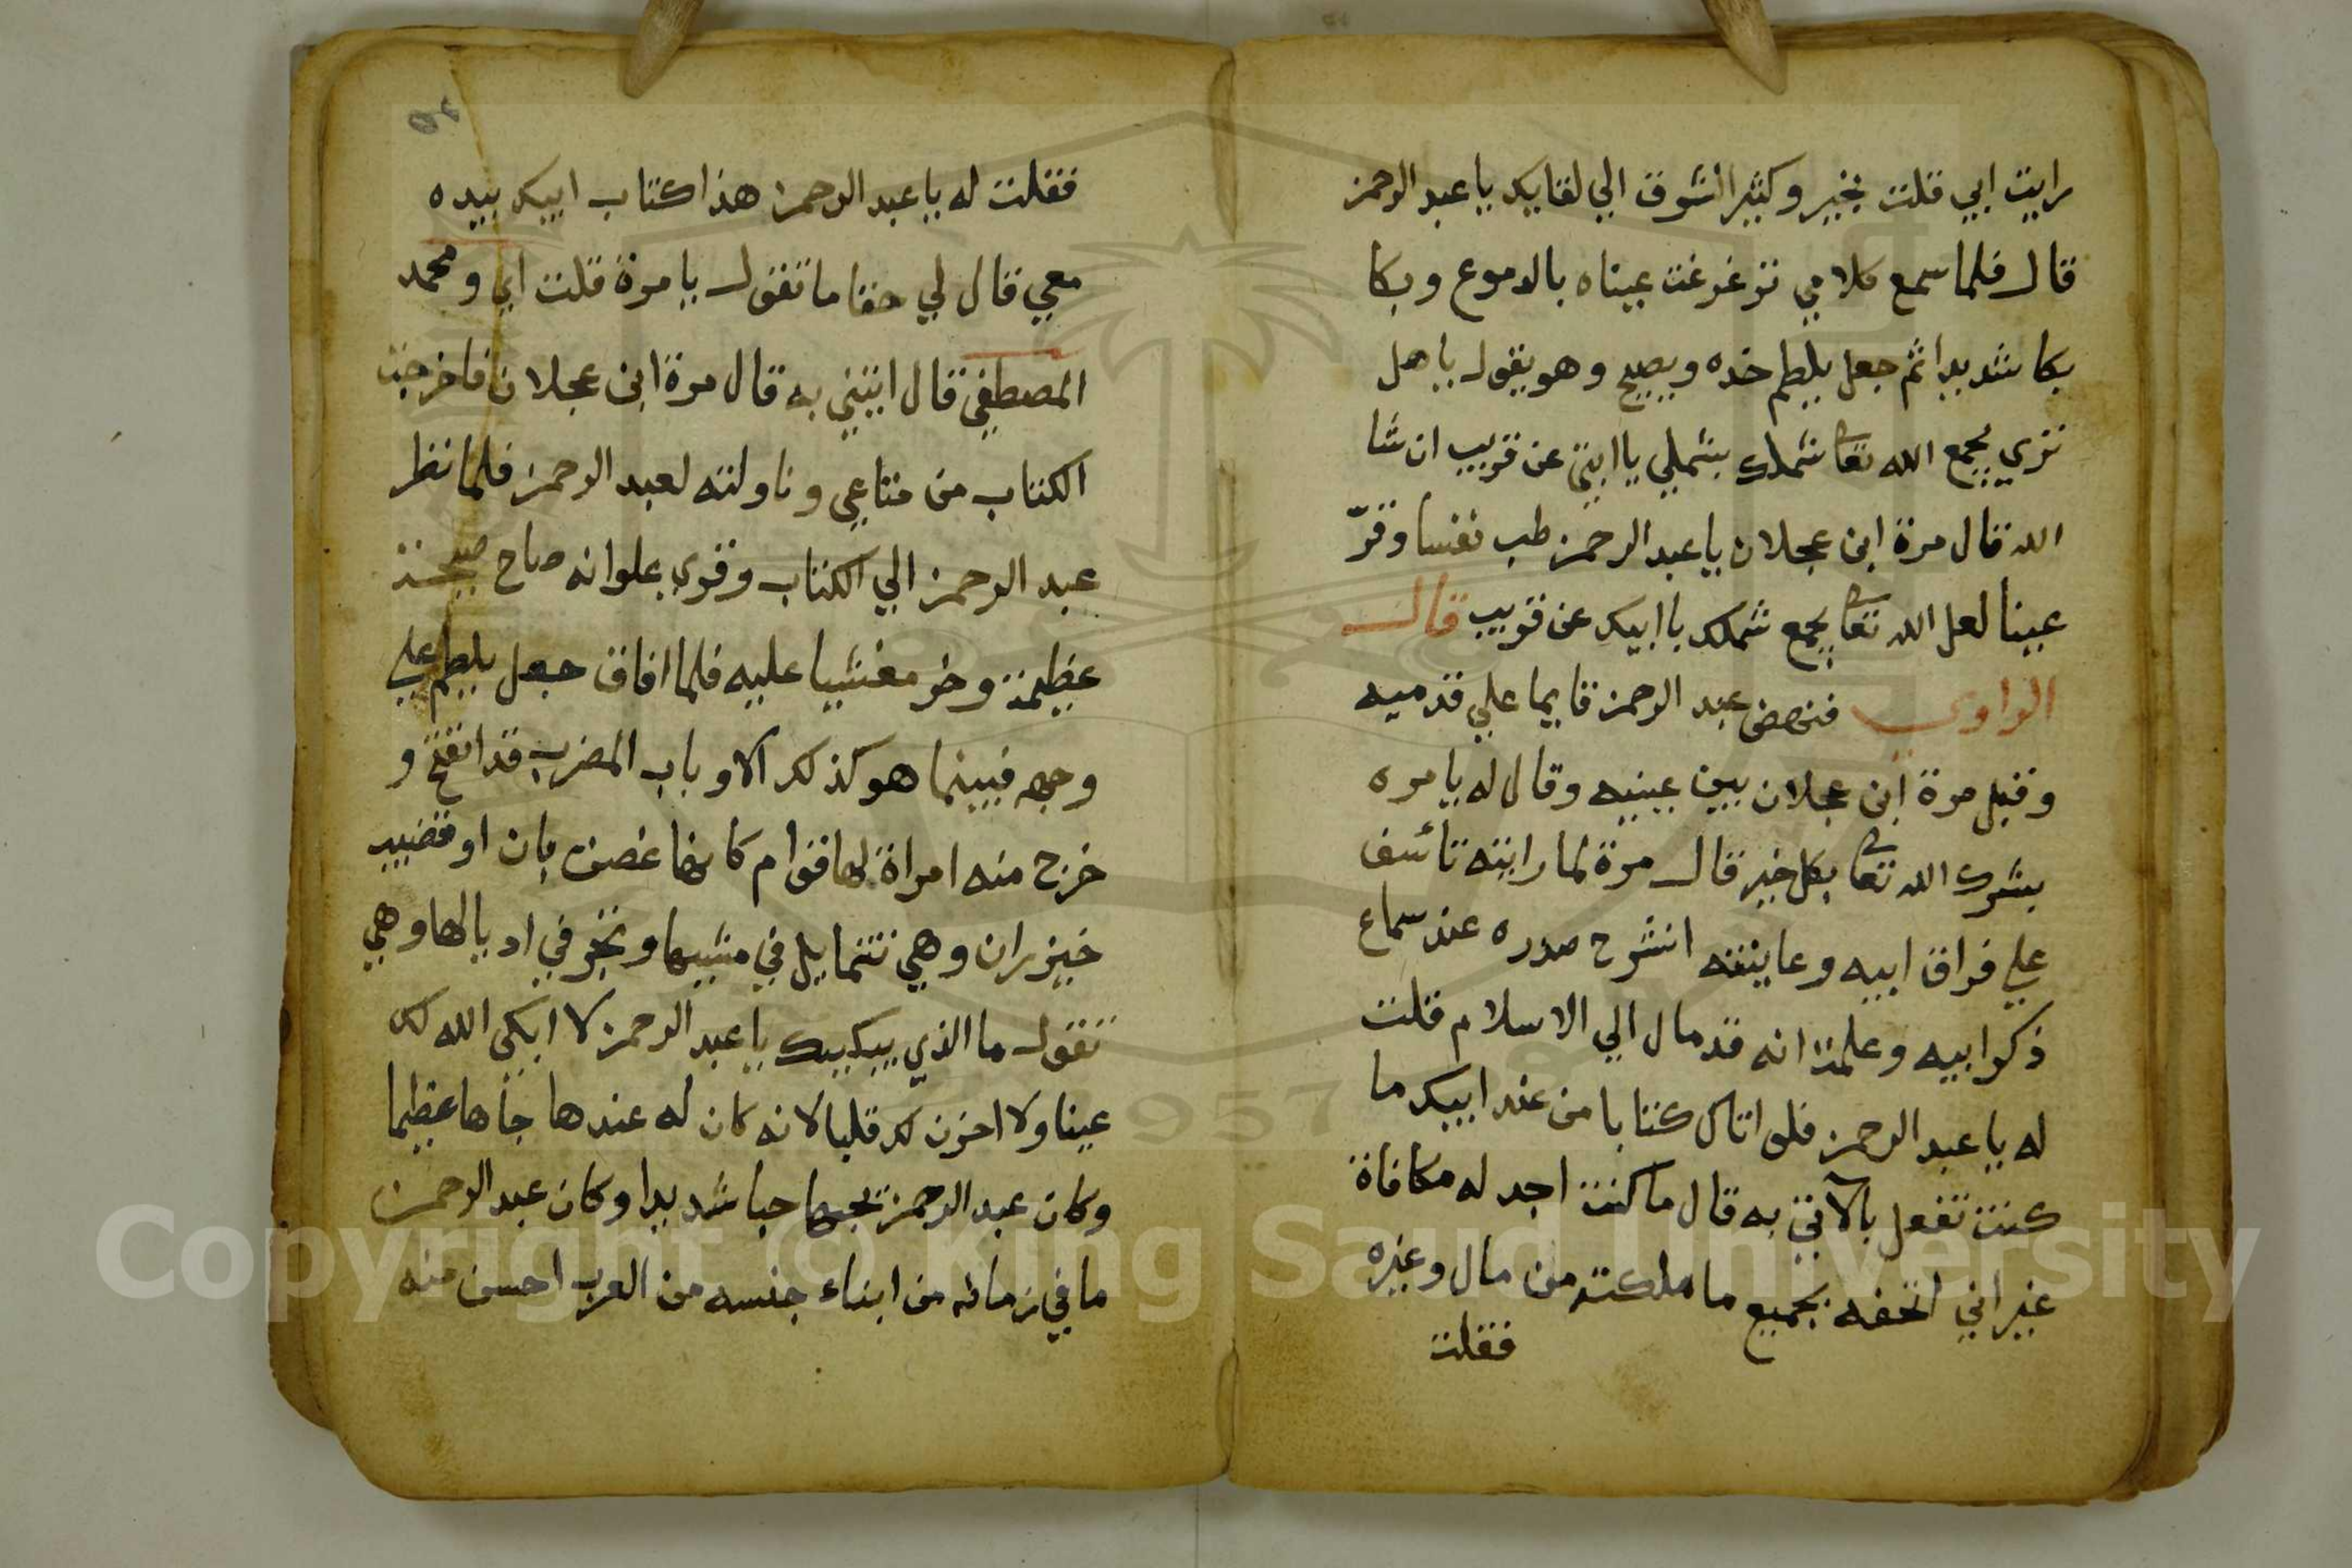 رايت ابي قلت بخير وكثير الشوق الي لقايك يا عبد الرحمن
قال فلما سمع كلامي تزغرغت عيناه بالدموع وبكا
بكا شديدا ثم جعل يلطم خده ويصيح وهو يقول يا هل
تري يجمع الله تعا شملك بشملي يا ابتي عن قريب ان شا
الله قال مرة ابن عجلان يا عبد الرحمن طب نفسا وقرّ
عينا لعل الله تعا يجمع شملك باابيك عن قريب قال
الراوي فنهض عبد الرحمن قايما علي قدميه
وقبل مرة ابن عجلان بين عينيه وقال له يا مره
بشرك الله تعا بكل خير قال مرة لما رايته تائسف
علي فراق ابيه وعاينته انشرح صدره عند سماع
ذكر ابيه وعلمت انه قد مال الي الاسلام قلت
له يا عبد الرحمن فلو اتاك كتابا من عند ابيك ما
كنت تفعل بالآتي به قال ما كنت اجد له مكافاة
غير اني اتحفه بجميع ما ملكته من مال وغيره
فقلت
فقلت له يا عبد الرحمن هذا كتاب ابيك بيده
معي قال لي حقا ما تقول يا مرة قلت اي ومحمد
المصطفي قال ايتني به قال مرة ابن عجلان فاخرجت
الكتاب من متاعي وناولته لعبد الرحمن فلما نظر
عبد الرحمن الي الكتاب وقري علوانه صاح صيحة
عظيمة وخر مغشيا عليه فلما افاق جعل يلطم علي
وجهه فبينما هو كذلك الا وباب المضرب قد انفتح و
خرج منه امراة لها قوام كانها غصن بان او قضيب
خيزران وهي تتمايل في مشيها وتجر في اديالها وهي
تقول ما الذي يبكيك يا عبد الرحمن لا ابكي الله لك
عينا ولا احزن لك قلبا لانه كان له عندها جاها عظيما
وكان عبد الرحمن يحبها حبا شديدا وكان عبد الرحمن
ما في زمانه من ابناء جنسه من العرب احسن منه
Copyright © King Saud University
1957